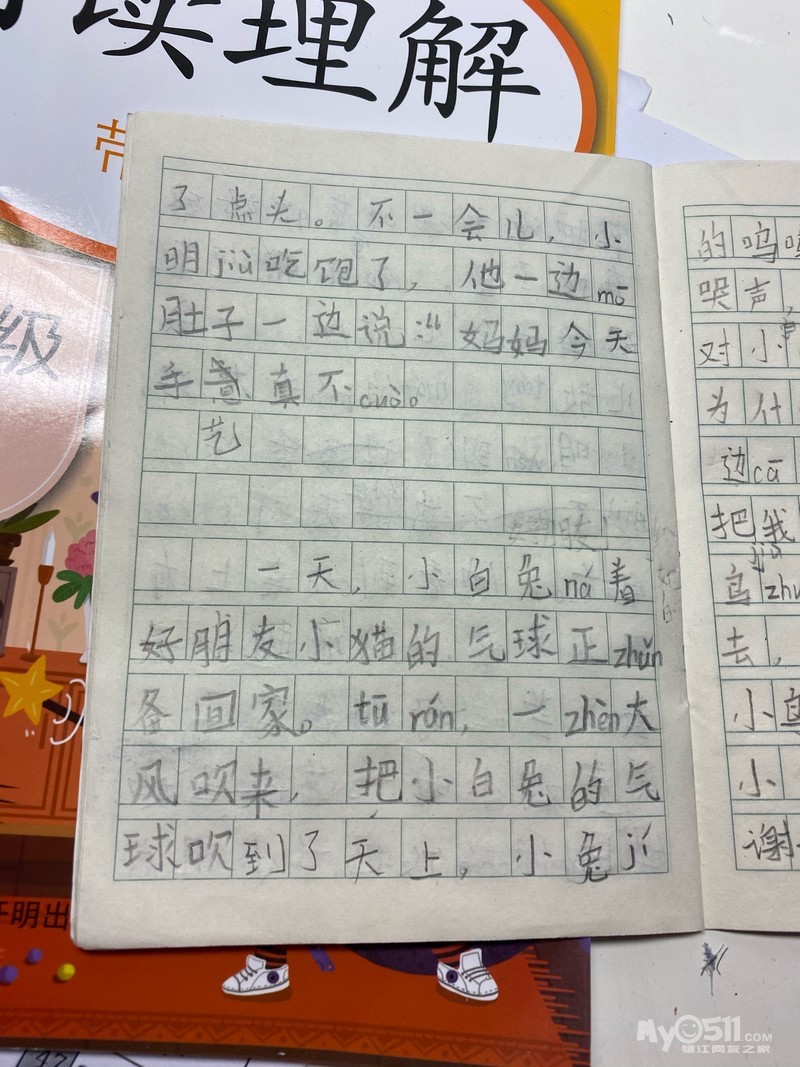 读理解
级
了点头。不一会儿，小
明jiù吃饱了，他一边mō
肚子一边说:“妈妈今天
手意真不cuò。
艺
一天，小白兔ná着
好朋友小猫的气球正zhǔn
备回家。tū rán，一zhèn大
风吹来，把小白兔的气
球吹到了天上，小兔jí
的呜
哭声，
对小
为什
边cā
把我
鸟zhu
去，
小鸟
小
谢
开明出
My0511.COM
镇江网友之家